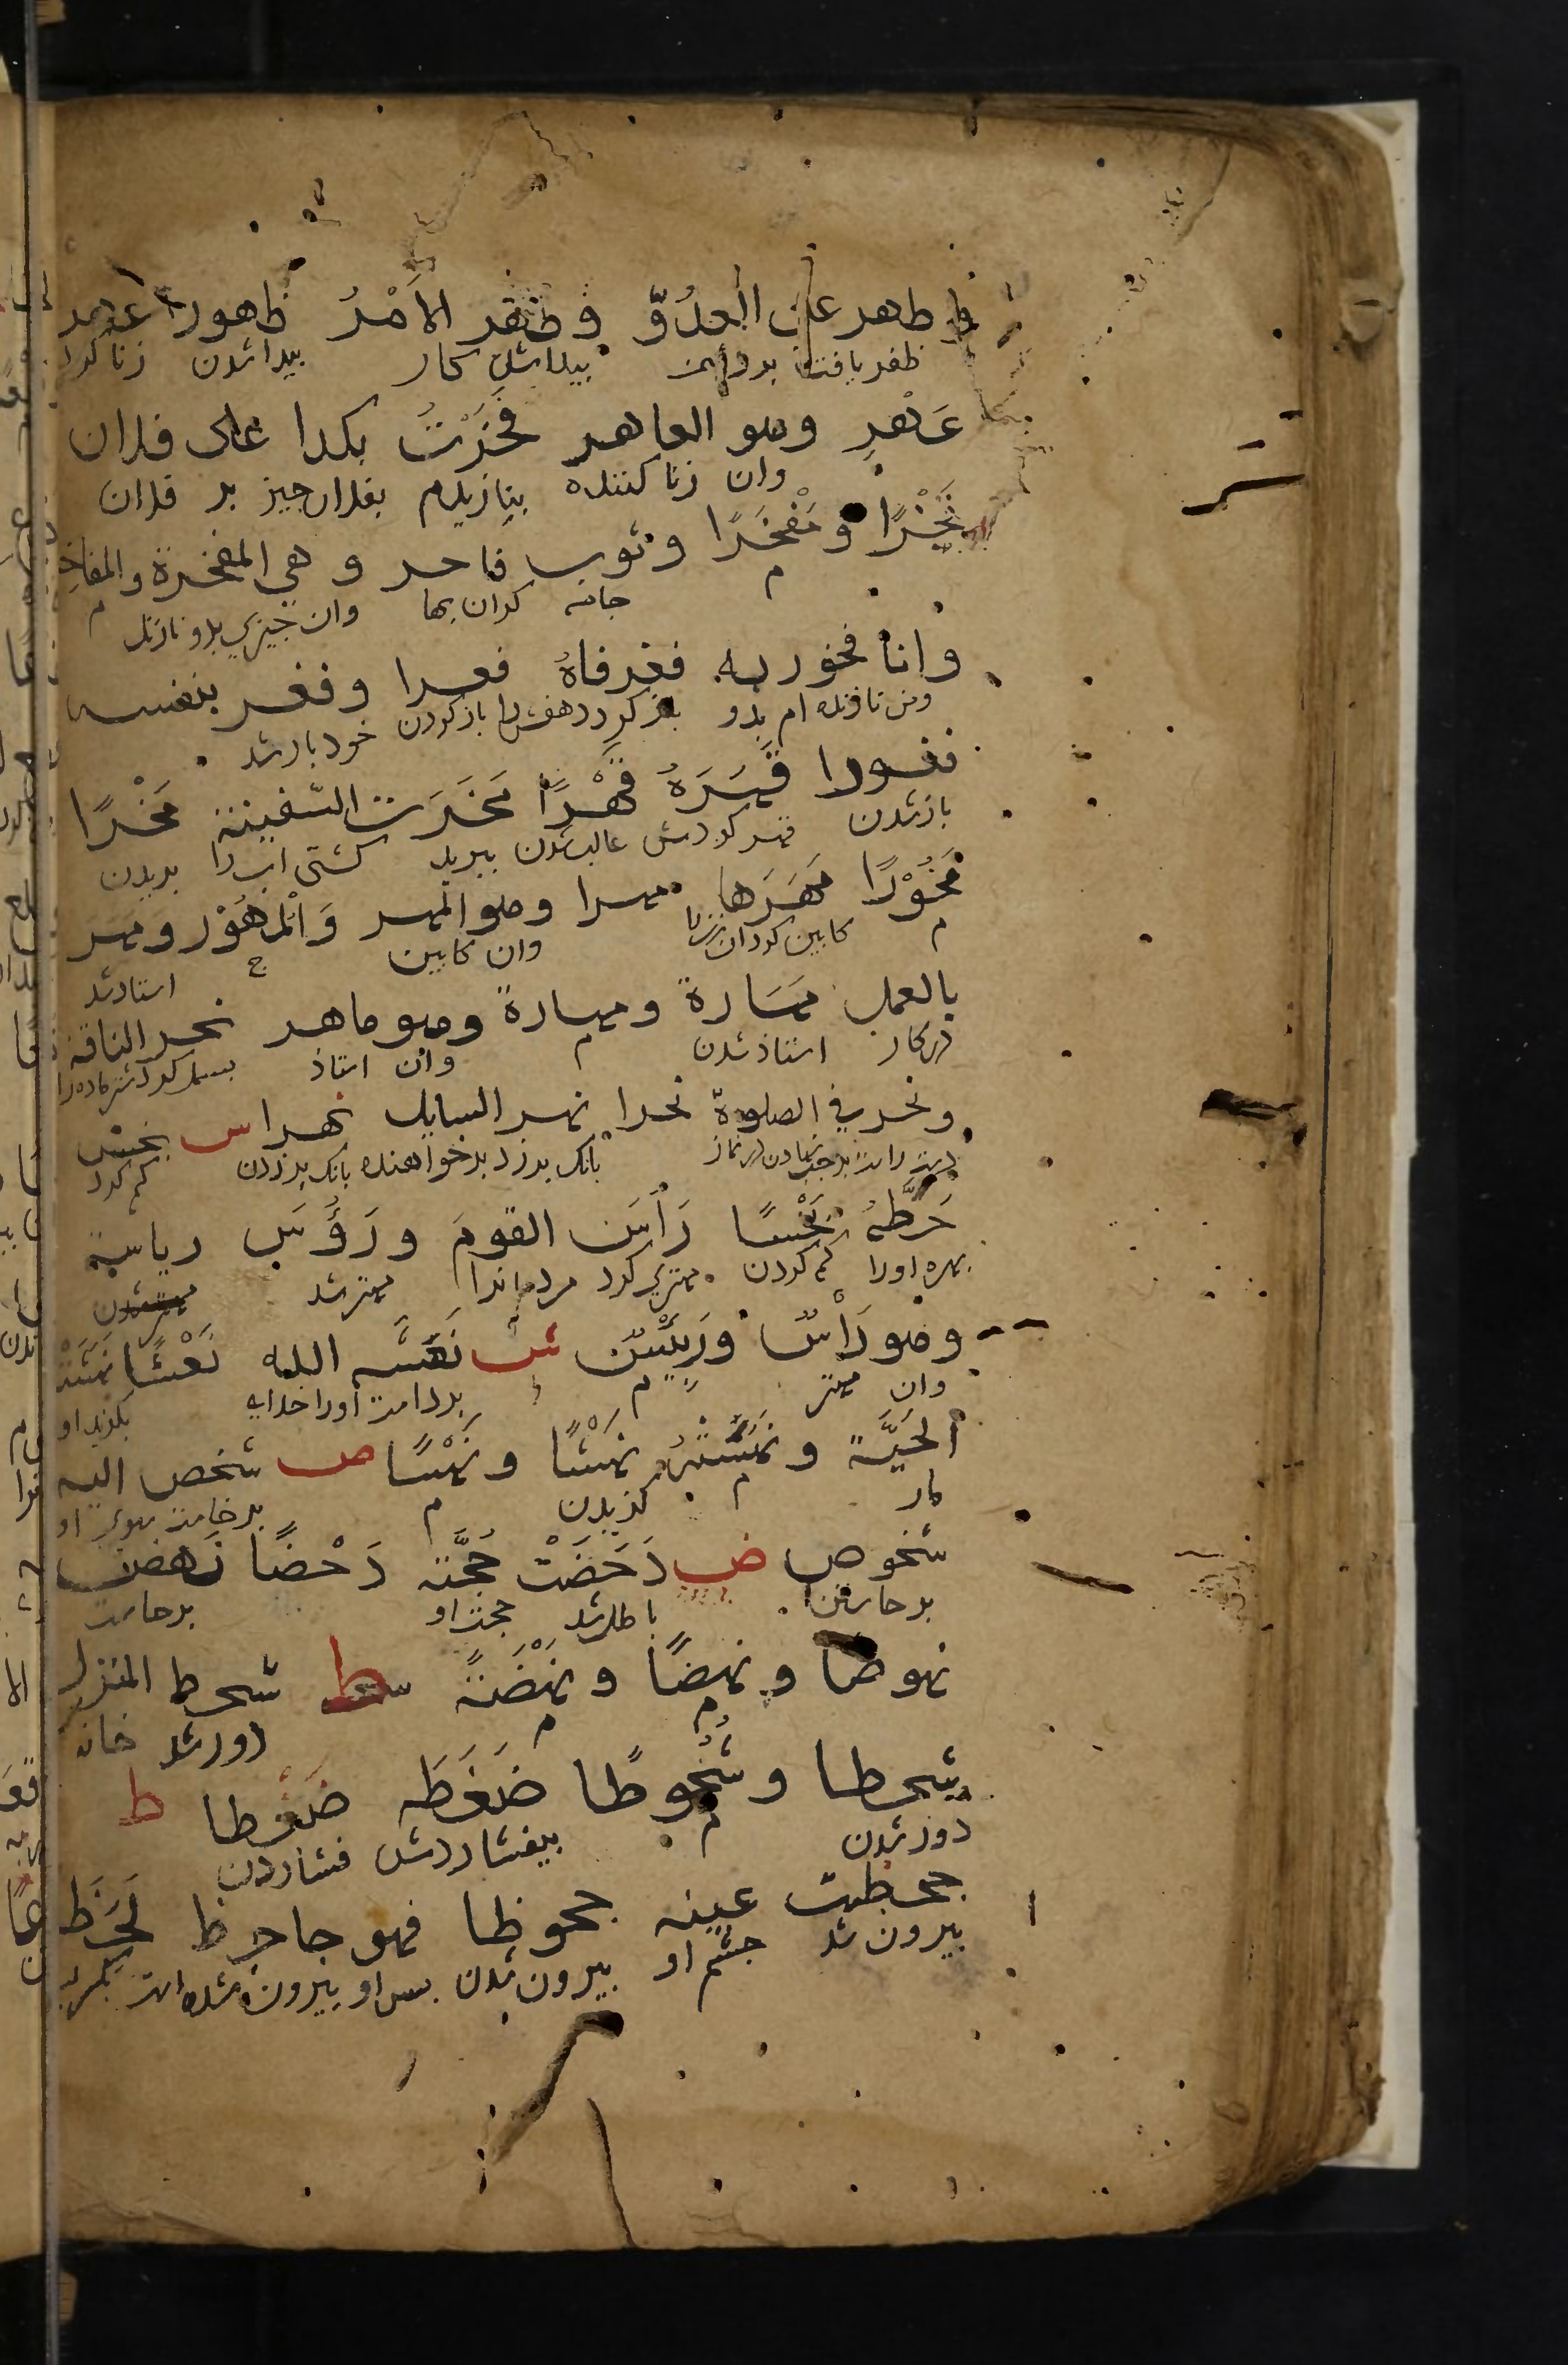 و ظهر على العدوّ و ظهر الأمْرُ ظهورا عهر
ظفر یافت بر دشمن بیدا شد کار بیدا شدن زنا کرد
عَهْرٍ وهو العاهر فَخَرْتُ بكذا على فلان
وان زنا کننده بنازیدم بفلان جیز بر فلان
فَخْرًا و مَفْخَرًا وثوب فاخر و هي المفخرة والمفاخر
م جامه کران بها وان جیزی بدو نازند م
وانا فخور به فغر فاهُ فغرا و فغر بنفسه
ومن نازنده ام بدو باز کرد دهنش را باز کردن خود باز شد
فغورا قَهَرَهُ قَهْرًا مَخَرَت السّفينة مَخْرًا
باز شدن قهر کردش غالب شدن ببرید کشتی اب را بریدن
مَخُوْرًا مَهَرَها مهرا وهو المهر وَالْمَهُوْر ومهر
م کابین کرد ان زنرا وان کابین ج استاد شد
بالعمل مَهَارة ومهارةً وهو ماهر نحر الناقة
در کار استاذ شدن م وان استاذ بسمل کرد شتر ماده را
ونحر في الصلوة نحرا نهر السايل نهرا س بخس
دست راست بر جب نهادن در نماز بانک بر زد بر خواهنده بانک بر زدن کم کرد
حَظَّهُ بَخْسًا رَأَسَ القومَ ورَؤُسَ رياسة
بهره اورا کم کردن مهتری کرد مردمانرا مهتر شد مهتر شدن
وهو رَأْسٌ ورَئِيْسٌ ش نَعَشَه الله نَعْشًا نَهَشَتْهُ
وان مهتر م برداشت اورا خدای بکزید او
الحَيَّة و نَهَسَتْهُ نَهْشًا و نَهْسًا ص شخص اليه
مار م کزیدن م بر خاست بسوی او
شخوص ض دَحَضَتْ حُجَّته دَحْضًا نَهض
بر خاستن باطل شد حجت او بر خاست
نهوضا و نهضًا و نَهْضَةً ط شحط المنزل
م م دور شد خانه
شحطا و شُحُوطًا ضَغَطَه ضَغْطا ظ
دور شدن م بیفشاردش فشاردن
جحظت عينه جحوظا فهو جاحِظ لَحَظَ
بیرون شد جشم او بیرون شدن بس او بیرون شده است